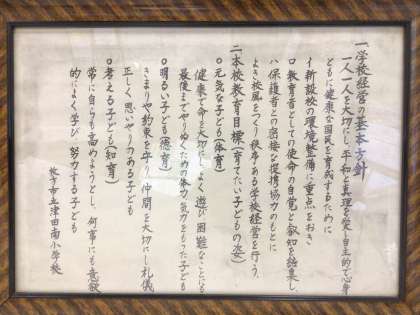 一、学校経営の基本方針
一人一人を大切にし、平和と真理を愛し自主的で心身
ともに健康な国民を育成するために
イ 新設校の環境整備に重点をおき
ロ 教育者としての使命の自覚と叡知を結集し
ハ 保護者との密接な提携協力のもとに
よき校風をつくり秩序ある学校経営を行う。
二、本校教育目標(育てたい子どもの姿)
○元気な子ども(体育)
健康で命を大切にし、よく遊び困難なことにも
最後までやりぬくための体力、気力をもった子ども
○明るい子ども(徳育)
きまりや約束を守り仲間を大切にし礼儀
正しく思いやり力ある子ども
○考える子ども(知育)
常に自らを高めようとし、何事にも意欲
的によく学び努力する子ども
枚方市立津田南小学校